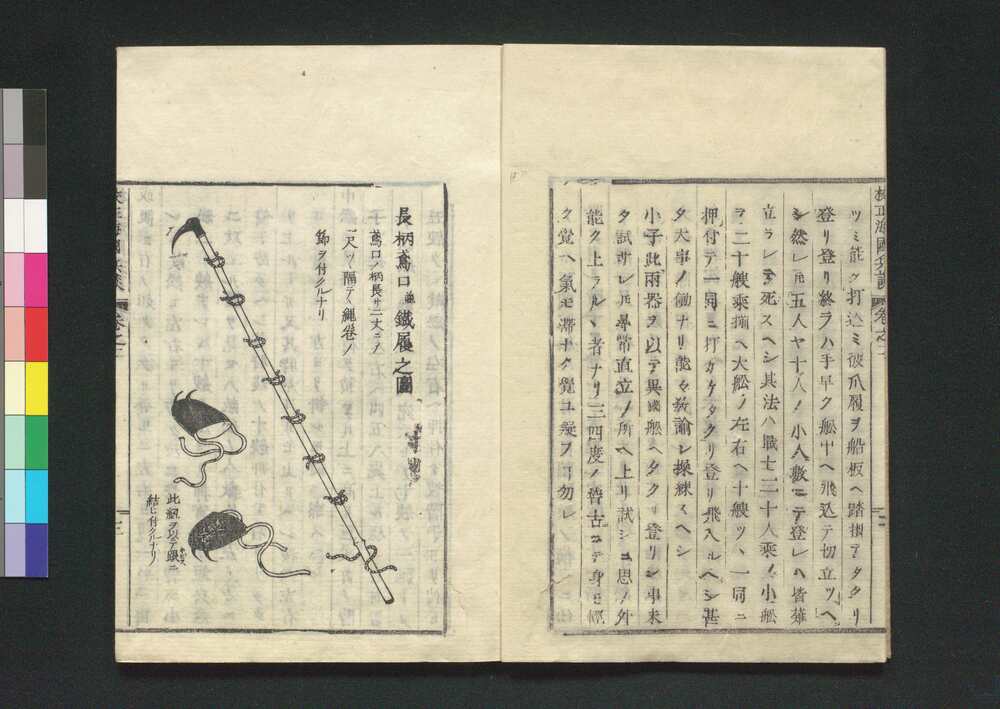 ツミ能ク打込ミ彼爪履ヲ船板ヘ踏掛テタクリ
登リ登リ終ラハ手早ク船中ヘ飛込テ切立ツヘ
シ然レ𪜈五人ヤ十人ノ小人數ニテ登レハ皆薙
立ラレテ死スヘシ其法ハ戰士二十人乘ノ小船
ヲ二十艘乘揃ヘ大船ノ左右ヘ十艘ツヽ一同ニ
押付テ一同ニ打カケタクリ登リ飛入ルヘシ甚
タ大事ノ働ナリ能々敎諭シ操練スヘシ
小子此兩器ヲ以テ異國船ヘタクリ登リシ事未
タ試サレ𪜈尋常直立ノ所ヘ上リ試シニ思ノ外
能ク上ラルヽ者ナリ三四度ノ稽古ニテ身モ輕
ク覺ヘ氣モ滯ナク覺ユ疑フヿ勿レ
長柄鳶口並鐵履之圖
鳶口ノ柄長サ二丈ニノ
一尺ツヽ隔テヽ繩卷ノ
節ヲ付クルナリ
此紐ヲ以テ跟ニ
結ヒ付クルナリ